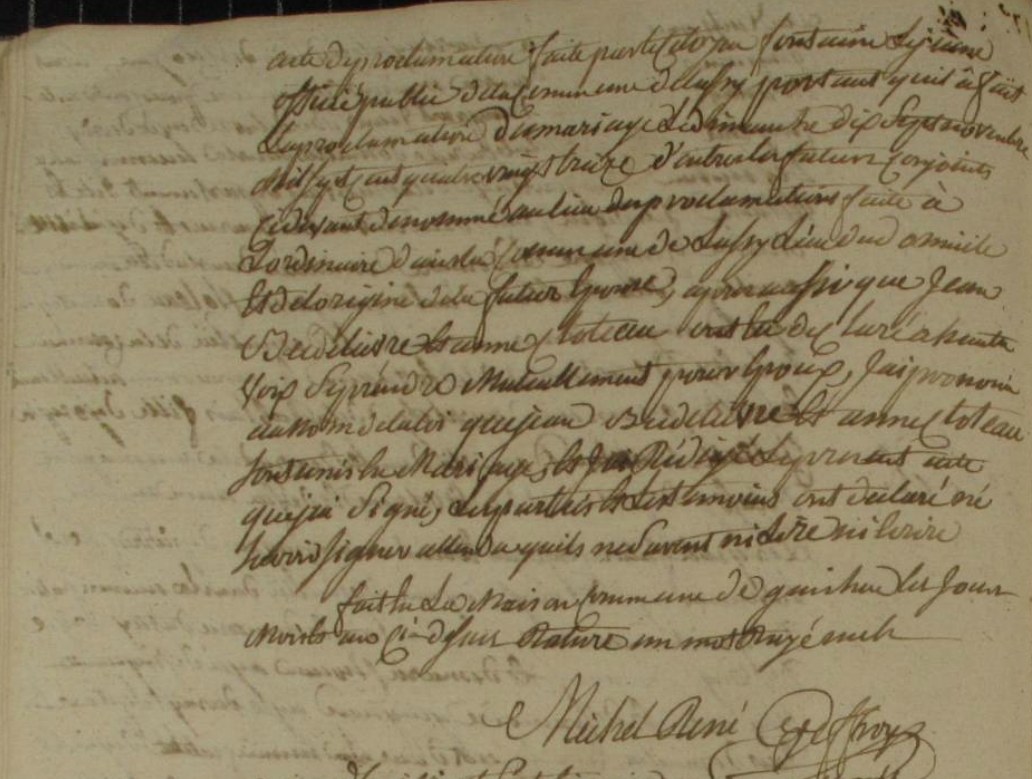 acte de proclamation faite par le citoyen fontaine Lejeune
officié public de la Commune de Lussy portant quil à fait
La proclamation du mariage Le dimanche dix Sept novembre
mil Sept Cent quatre vingt treize d'entre les futurs Conjoints
Cy devant denommé au lieu des proclamations faite à
Lordinaire dans la Commune de Lussy Lieu du domicile
Et de lorigine de la futur Epouse, apres aussi que Jean
Bedeliere Et anne Cloteau ont Eu declaré a haute
Voix Se prendre Mutuellement pour Epoux, Jai prononcé
au nom de la loi que jean Bedeliere Et anne Cloteau
Sont unis En Mariage, Et Jai Rédigé Le present acte
que jai Signé, Les parties Et Les temoins ont declaré né
Savoir signer attendu quils ne Savent ni Lire ni Ecrire
fait En La Maison Commune de Les Jour
Mois Et an Ci-dessus Rature un mot Rayé nul
Michel René Geffroy